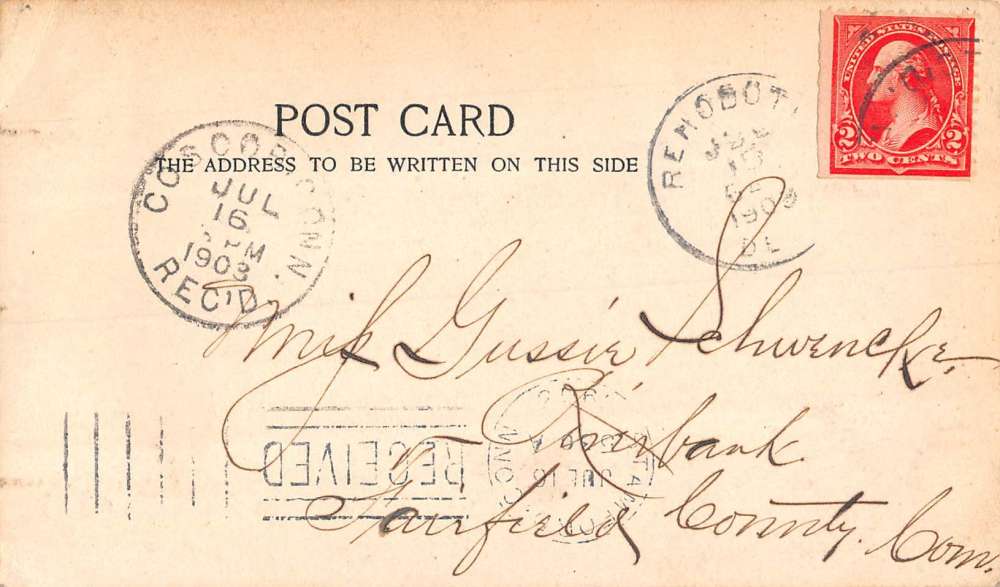 POST CARD
THE ADDRESS TO BE WRITTEN ON THIS SIDE
UNITED STATES POSTAGE
2 2
TWO CENTS
REHOBOT
JUL
1903
DEL
COS COB CONN.
JUL
16
PM
1903
REC'D
Miss Gussie Schwencke.
Riverbank
Fairfield County. Conn.
RECEIVED